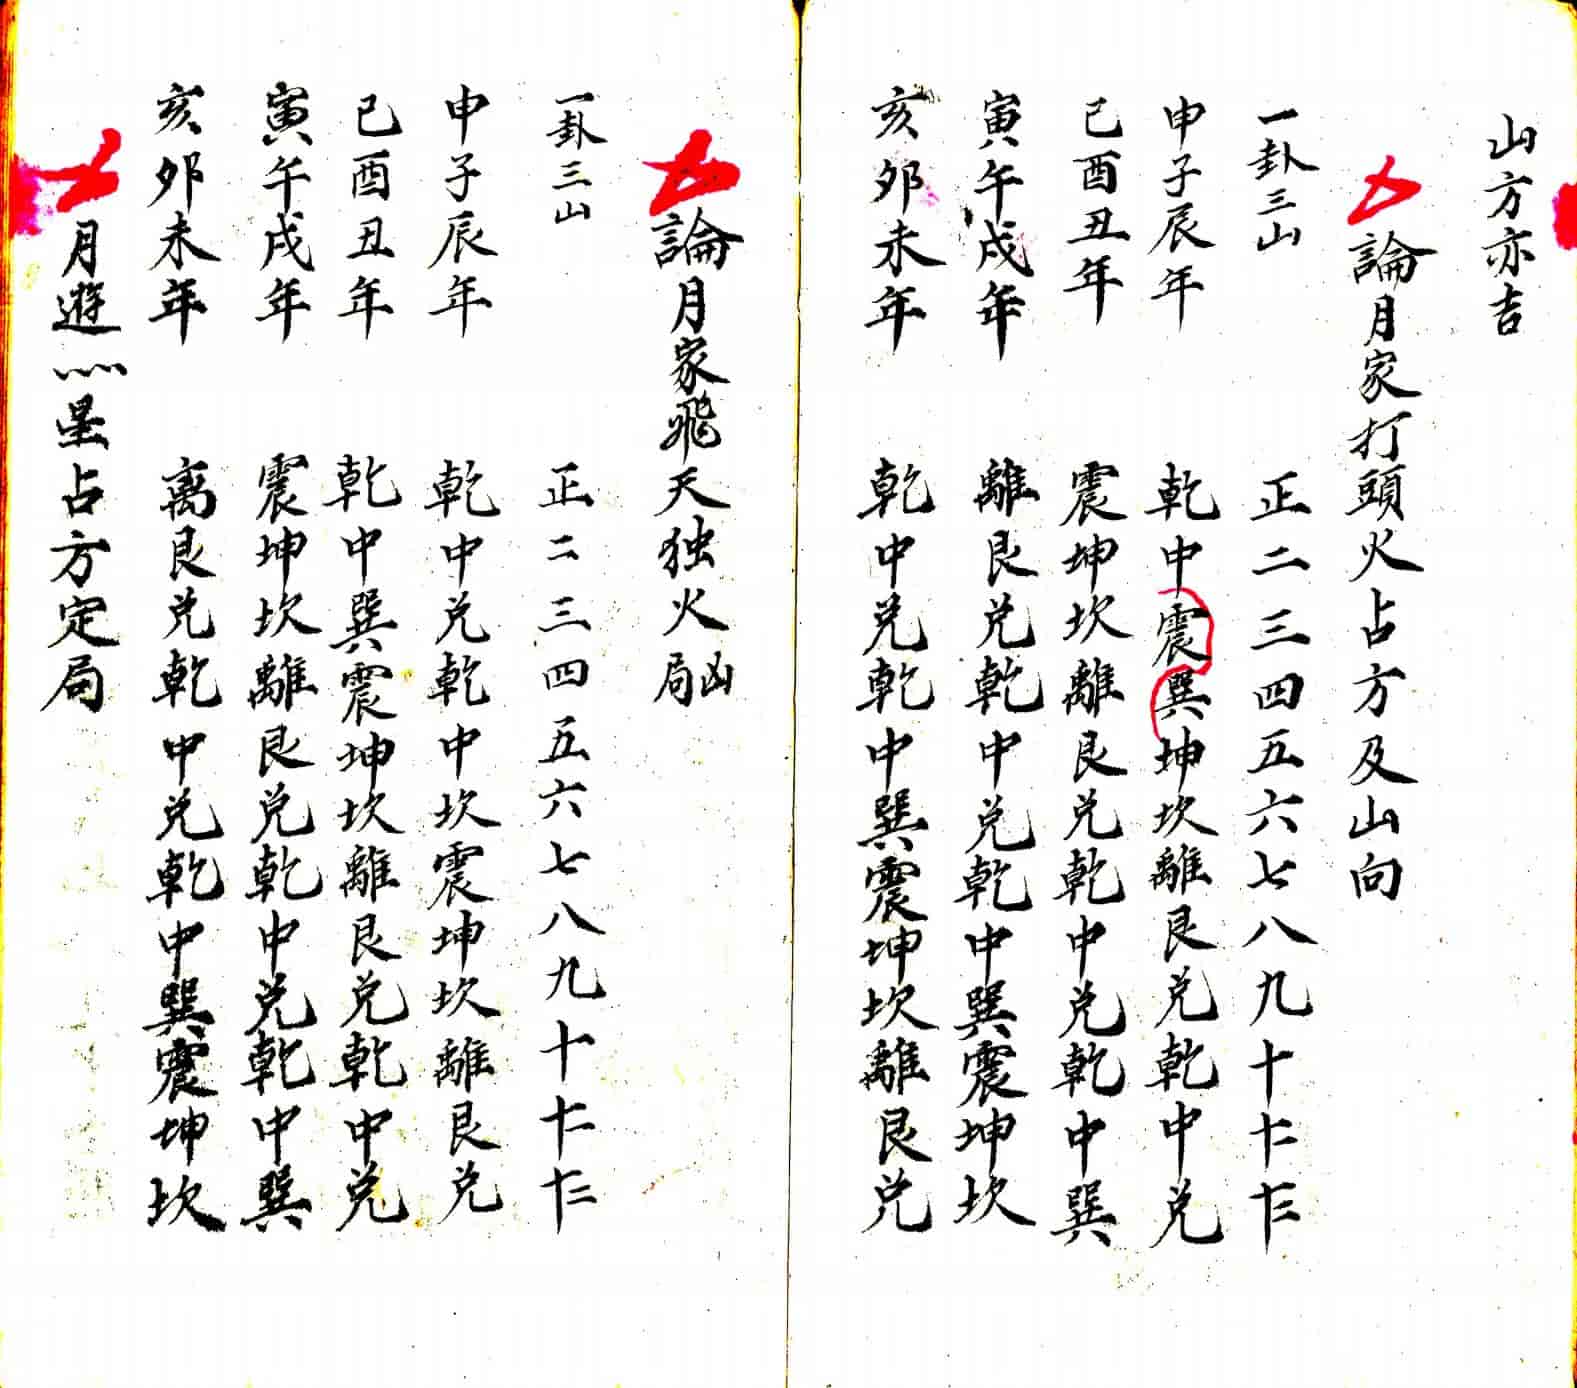 山方亦吉
論月家打頭火占方及山向
一卦三山 正二三四五六七八九十十一十二
申子辰年 乾中震巽坤坎離艮兑乾中兑
巳酉丑年 震坤坎離艮兑乾中兑乾中巽
寅午戌年 離艮兑乾中兑乾中巽震坤坎
亥卯未年 乾中兑乾中巽震坤坎離艮兑
論月家飛天独火凶局
一卦三山 正二三四五六七八九十十一十二
申子辰年 乾中兑乾中坎震坤坎離艮兑
巳酉丑年 乾中巽震坤坎離艮兑乾中兑
寅午戌年 震坤坎離艮兑乾中兑乾中巽
亥卯未年 离艮兑乾中兑乾中巽震坤坎
月遊灬星占方定局